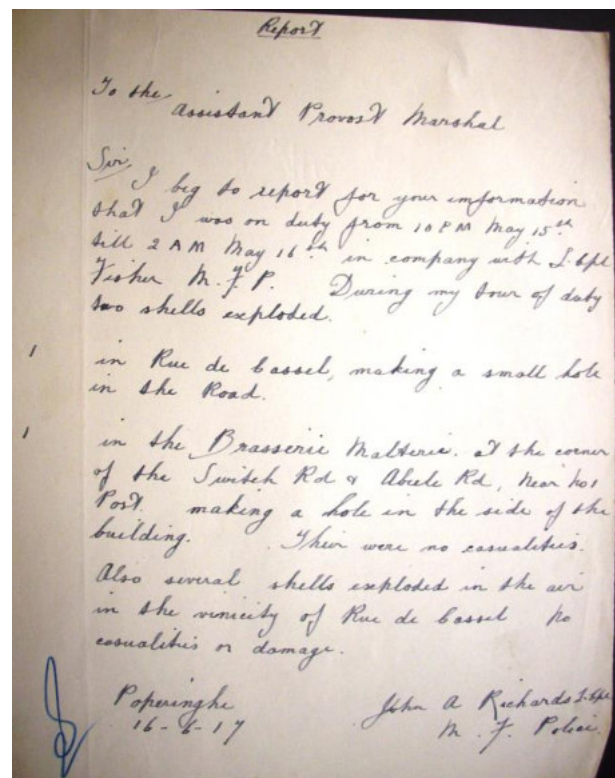 Report
To the
Assistant Provost Marshal
Sir,
I beg to report for your information
that I was on duty from 10 PM May 15th
till 2 AM May 16th in company with L. Cpl
Fisher M.F.P. During my tour of duty
two shells exploded.
1 in Rue de Cassel, making a small hole
in the Road.
1 in the Brasserie Malterie. at the corner
of the Switch Rd & Abeele Rd, Near No 1
Post. making a hole in the side of the
building. Their were no casualities.
Also several shells exploded in the air
in the vinicity of Rue de Cassel no
casualitis or damage.
Poperinghe John A Richards L. Cpl
16-6-17 M. F. Police